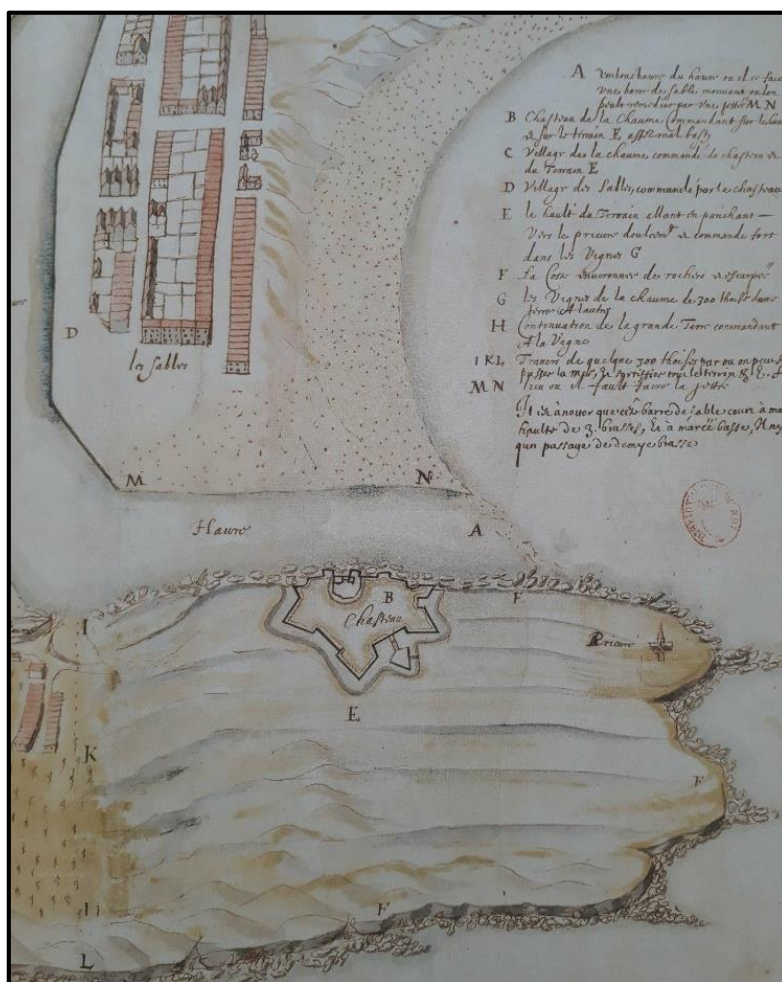 A Embouscheure du havre ou il se faict
une barre de sables mouvant ou lon
peult remedier par une jettée M N
B Chasteau de la Chaume Commandant sur le
& sur le terrain E asses mal basty
C Village de la chaume commandé de chasteau &
du Terrain E
D Village des Sables, commandé par le chasteau
E le hault du Terrain allant en panchant —
Vers le prieuré doulcemt & commande fort
dans les Vignes G
F La Coste de rochers & escarpée
G les Vignes de la chaume de 300 thoises dune
A lautre
H Continuation de la grande Terre commandant
A la Vigne
IKL Travers de quelque 300 thoises par ou on peut
passer la & fortifier tout le terrin
MN lieu ou il fault faire la jettée
Il est à noter que ceste barre de sable couvre à
haulte de 3. brasses, Et à marée basse, Il ny
qun passage de demye brasse
D
les Sables
M
N
Havre
A
I
B
Chasteau
F
Prieuré
E
K
F
H
F
L